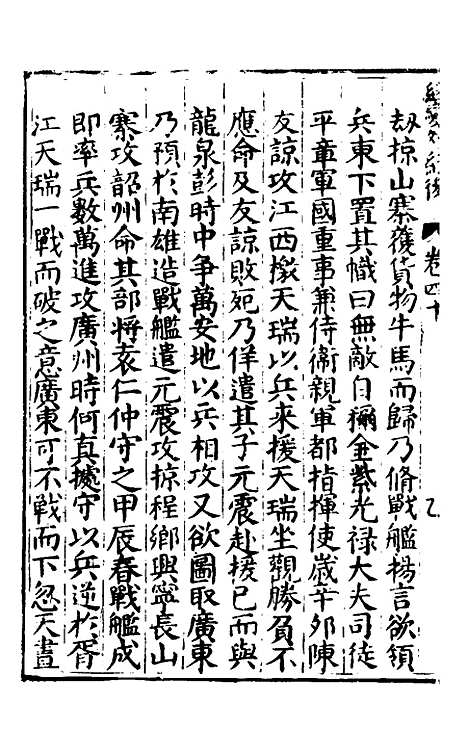 卷四十
刼掠山寨獲貨物牛馬而歸乃脩戰艦揚言欲領
兵東下置其幟曰無敵自稱金紫光禄大夫司徒
平章軍國重事兼侍衞親軍都指揮使歲辛夘陳
友諒攻江西檄天瑞以兵来援天瑞坐觀勝負不
應命及友諒敗死乃佯遣其子元震赴援已而與
龍泉彭時中争萬安地以兵相攻又欲圖取廣東
乃預扵南雄造戰艦遣元震攻掠程鄉興寧長山
寨攻韶州命其部將袁仁仲守之甲辰春戰艦成
即率兵數萬進攻廣州時何真㩀守以兵逆扵胥
江天瑞一戰而破之意廣東可不戰而下忽天晝